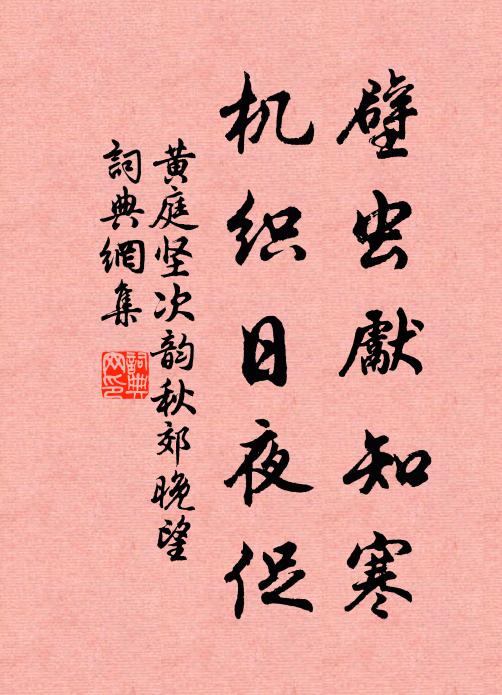 壁虫獻知寒
机织日夜促
黄庭坚次韵秋郊晚望
詞典網集
詞典网印